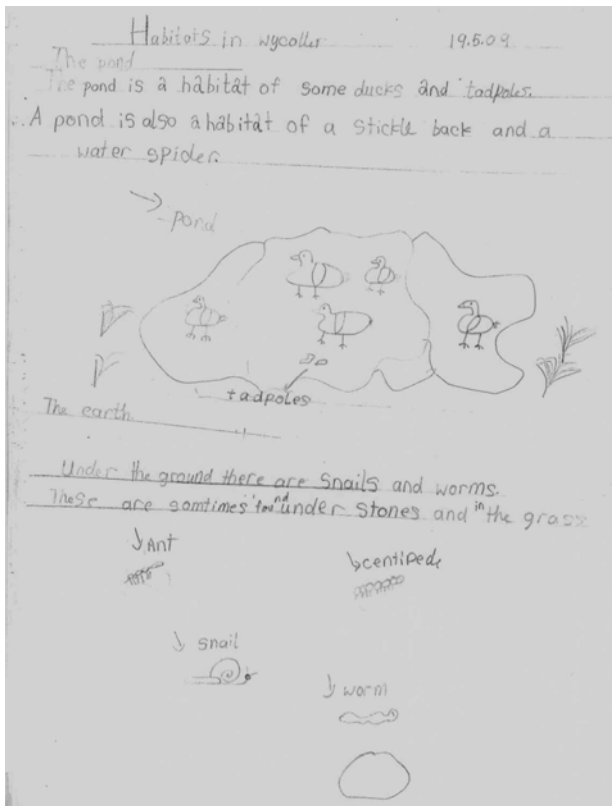 Habitats in wycoller 19.5.09
The pond
The pond is a habitat of some ducks and tadpoles.
A pond is also a habitat of a stickle back and a
water spider.
pond
tadpoles
The earth
Under the ground there are snails and worms.
These are somtimes found under stones and in the grass
Ant
centipede
snail
worm